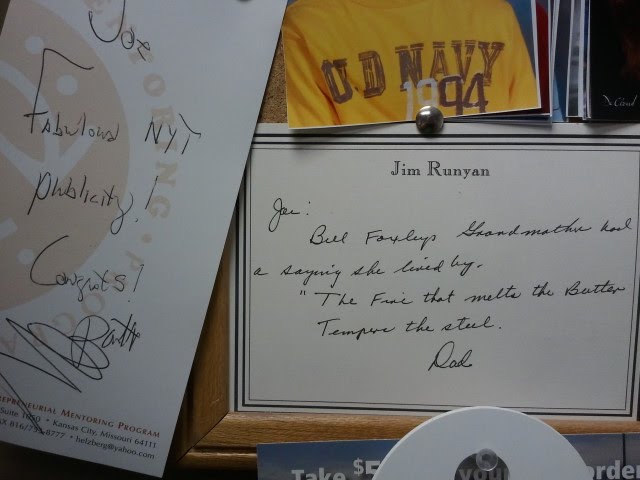 Joe
Fabulous NYT
publicity!
Congrats!
REPRENEURIAL MENTORING PROGRAM
Kansas City, Missouri 64111
helzberg@yahoo.com
OLD NAVY
1994
Jim Runyan
Joe:
Bill Foxleys Grandmother had
a saying she lived by.
"The Fire that melts the Butter
Tempers the steel.
Dad
Take $5 your order